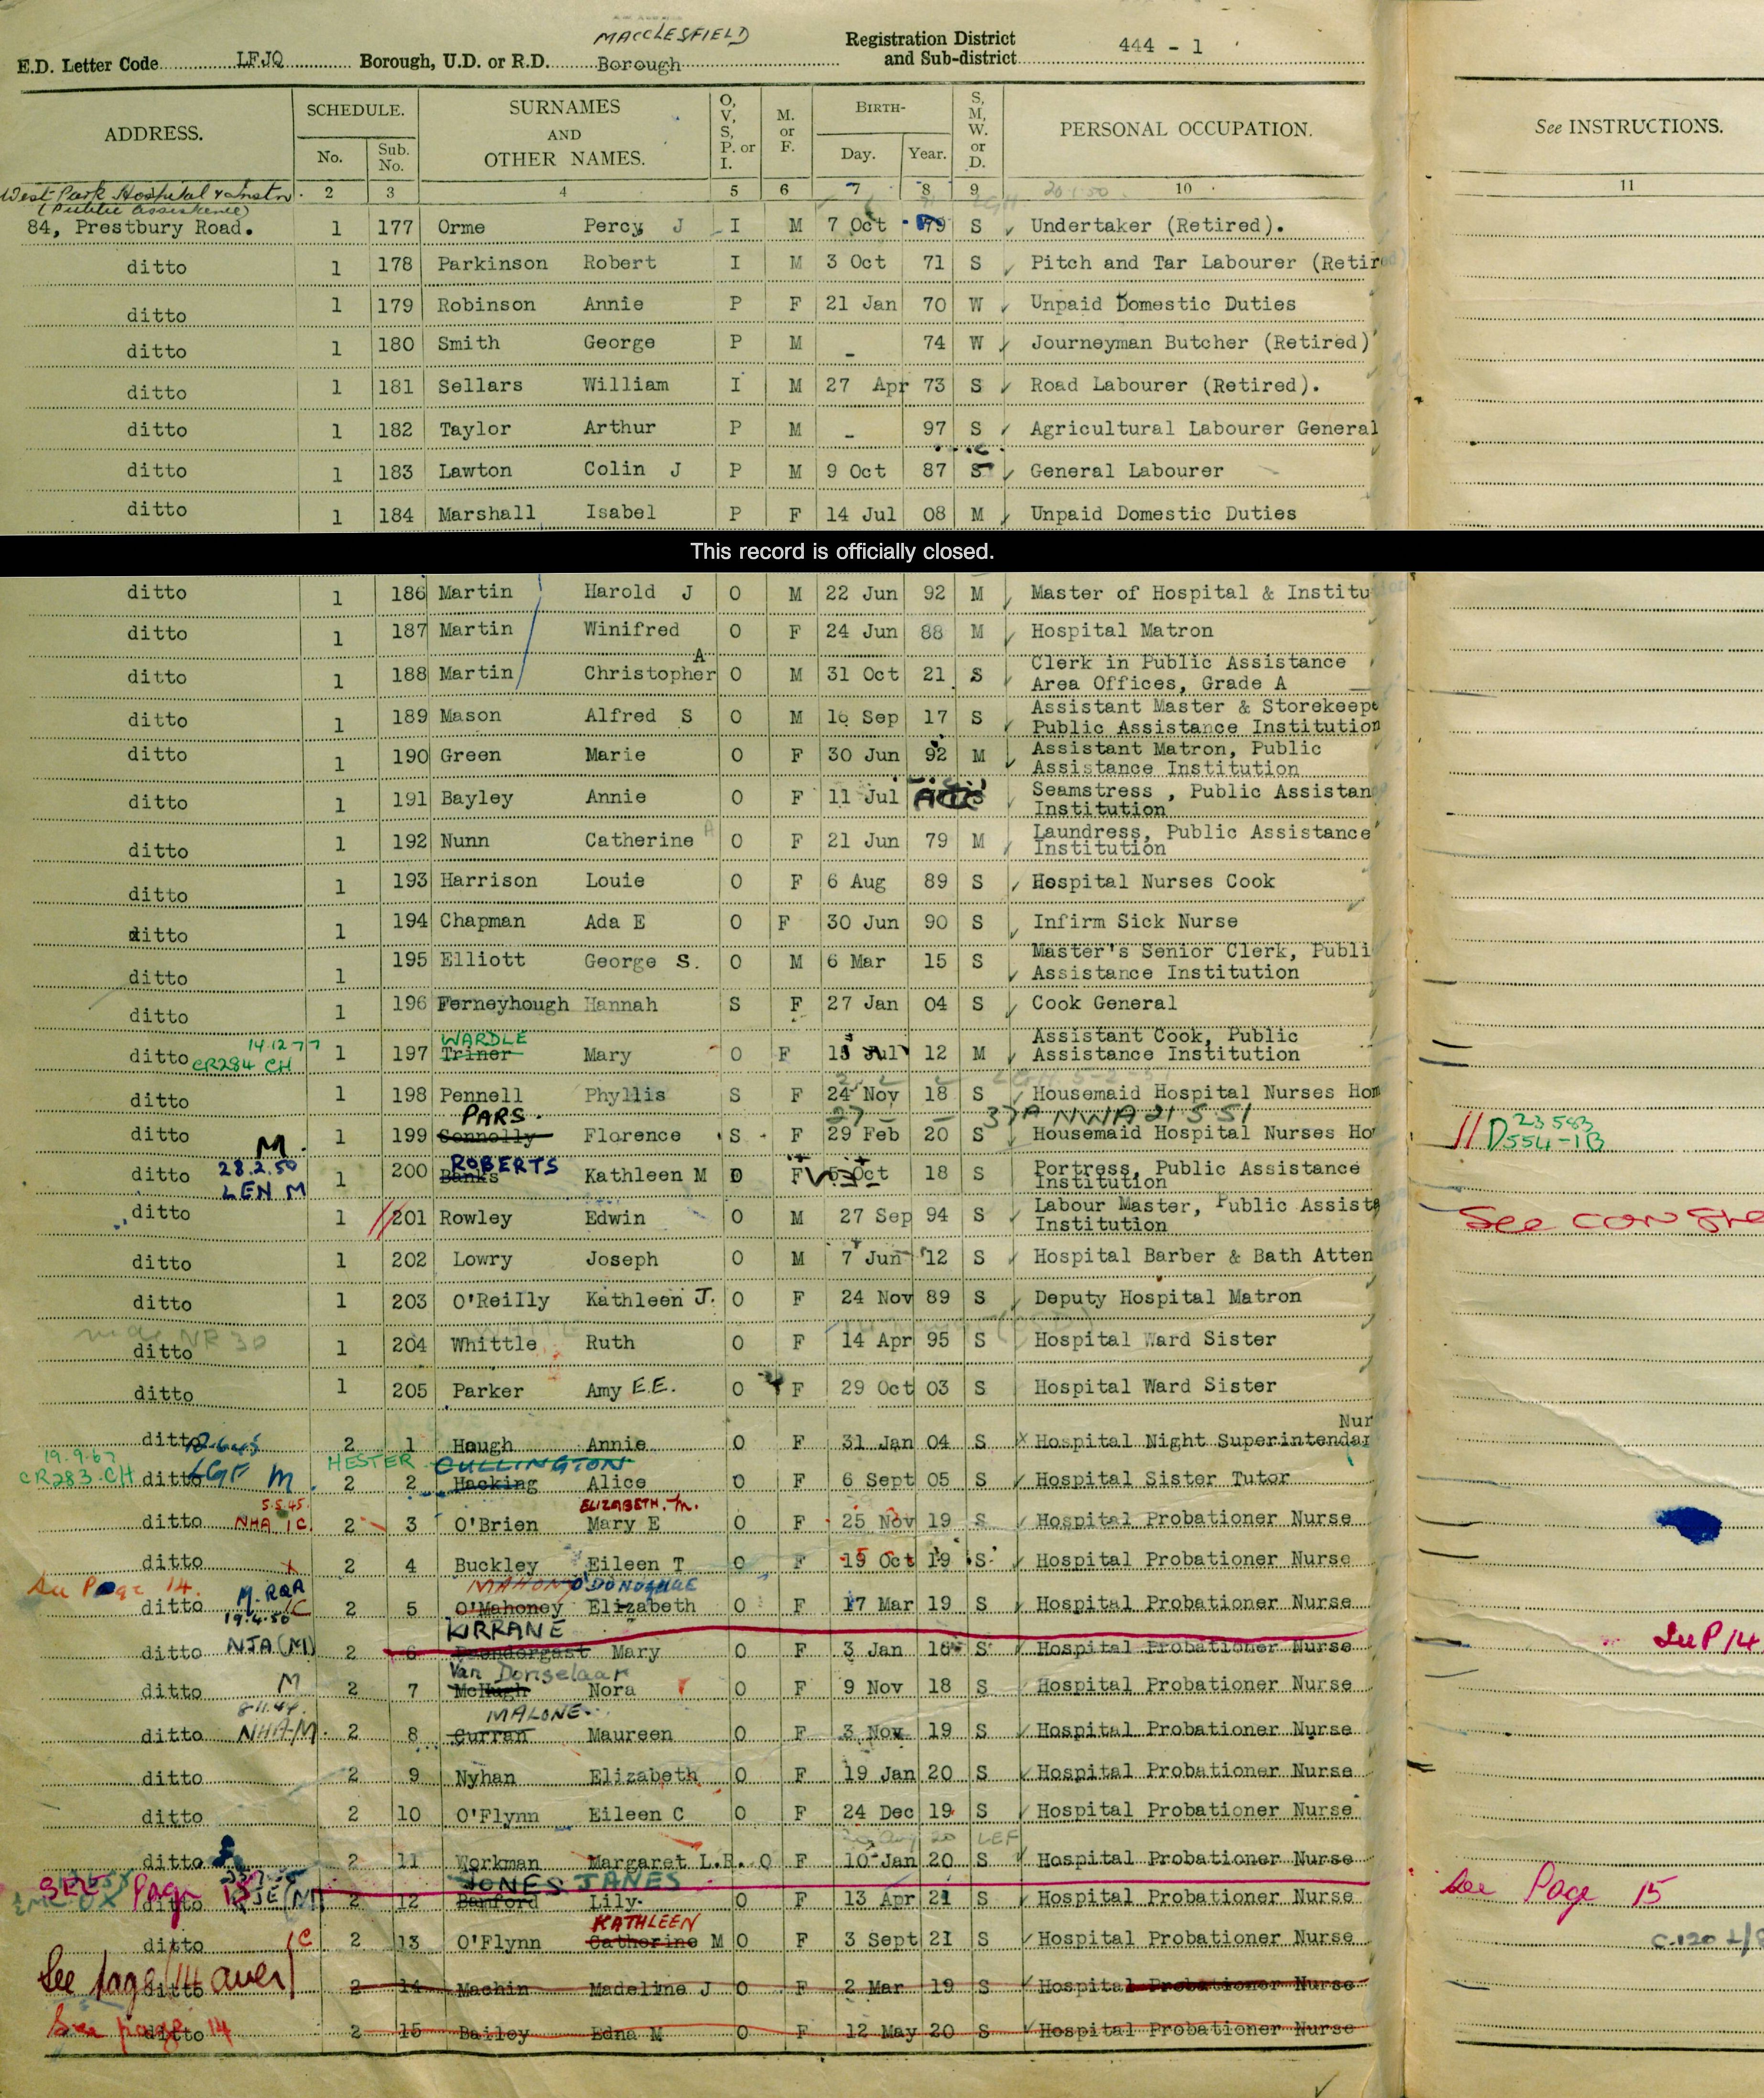 MACCLESFIELD
E.D. Letter Code LFJQ Borough, U.D. or R.D. Borough Registration District and Sub-district 444 - 1
ADDRESS. SCHEDULE. No. Sub. No. SURNAMES AND OTHER NAMES. O, V, S, P. or I. M. or F. BIRTH- Day. Year. S, M, W. or D. PERSONAL OCCUPATION. See INSTRUCTIONS.
West Park Hospital & Instn. 2 3 4 5 6 7 8 9 10 11
(Public Assistance)
84, Prestbury Road. 1 177 Orme Percy J I M 7 Oct 79 S Undertaker (Retired).
ditto 1 178 Parkinson Robert I M 3 Oct 71 S Pitch and Tar Labourer (Retired)
ditto 1 179 Robinson Annie P F 21 Jan 70 W Unpaid Domestic Duties
ditto 1 180 Smith George P M - 74 W Journeyman Butcher (Retired)
ditto 1 181 Sellars William I M 27 Apr 73 S Road Labourer (Retired).
ditto 1 182 Taylor Arthur P M - 97 S Agricultural Labourer General
ditto 1 183 Lawton Colin J P M 9 Oct 87 S General Labourer
ditto 1 184 Marshall Isabel P F 14 Jul 08 M Unpaid Domestic Duties
This record is officially closed.
ditto 1 186 Martin Harold J O M 22 Jun 92 M Master of Hospital & Institu
ditto 1 187 Martin Winifred O F 24 Jun 88 M Hospital Matron
ditto 1 188 Martin Christopher A O M 31 Oct 21 S Clerk in Public Assistance Area Offices, Grade A
ditto 1 189 Mason Alfred S O M 16 Sep 17 S Assistant Master & Storekeepe Public Assistance Institution
ditto 1 190 Green Marie O F 30 Jun 92 M Assistant Matron, Public Assistance Institution
ditto 1 191 Bayley Annie O F 11 Jul Seamstress , Public Assistan Institution
ditto 1 192 Nunn Catherine A O F 21 Jun 79 M Laundress, Public Assistance Institution
ditto 1 193 Harrison Louie O F 6 Aug 89 S Hospital Nurses Cook
ditto 1 194 Chapman Ada E O F 30 Jun 90 S Infirm Sick Nurse
ditto 1 195 Elliott George S. O M 6 Mar 15 S Master's Senior Clerk, Publi Assistance Institution
ditto 1 196 Ferneyhough Hannah S F 27 Jan 04 S Cook General
14.12.77 WARDLE
ditto CR284 CH 1 197 Triner Mary O F 13 Jul 12 M Assistant Cook, Public Assistance Institution
ditto 1 198 Pennell Phyllis S F 24 Nov 18 S Housemaid Hospital Nurses Hom
PARS. 27 37A NWA 21 5 51 23 583
ditto M. 1 199 Connolly Florence S F 29 Feb 20 S Housemaid Hospital Nurses Ho D554-1B
28.2.50 ROBERTS
ditto LEN M 1 200 Banks Kathleen M O F 5 Oct 18 S Portress, Public Assistance Institution
ditto 1 201 Rowley Edwin O M 27 Sep 94 S Labour Master, Public Assista Institution See
ditto 1 202 Lowry Joseph O M 7 Jun 12 S Hospital Barber & Bath Atten
ditto 1 203 O'Reilly Kathleen J. O F 24 Nov 89 S Deputy Hospital Matron
NR 30
ditto 1 204 Whittle Ruth O F 14 Apr 95 S Hospital Ward Sister
ditto 1 205 Parker Amy E.E. O F 29 Oct 03 S Hospital Ward Sister
ditto 2 1 Hough Annie O F 31 Jan 04 S Hospital Night Superintendan Nur
19.9.67 HESTER CULLINGTON
CR283 CH ditto M 2 2 Hacking Alice O F 6 Sept 05 S Hospital Sister Tutor
5.5.45. ELIZABETH. M.
ditto NHA 1C 2 3 O'Brien Mary E O F 25 Nov 19 S Hospital Probationer Nurse
ditto 2 4 Buckley Eileen T O F 15 Oct 19 S Hospital Probationer Nurse
See Page 14. M. RQA MAHONY O'DONOGHUE
ditto 19.4.50 1C 2 5 O'Mahoney Elizabeth O F 17 Mar 19 S Hospital Probationer Nurse
KIRRANE
ditto NJA (M) 2 6 Prendergast Mary O F 3 Jan 16 S Hospital Probationer Nurse See P14
Van Donselaar
ditto M 2 7 McHugh Nora O F 9 Nov 18 S Hospital Probationer Nurse
8.11.44. MALONE
ditto NHA-M. 2 8 Curran Maureen O F 3 Nov 19 S Hospital Probationer Nurse
ditto 2 9 Nyhan Elizabeth O F 19 Jan 20 S Hospital Probationer Nurse
ditto 2 10 O'Flynn Eileen C O F 24 Dec 19 S Hospital Probationer Nurse
LEF
ditto 2 11 Workman Margaret L.R. O F 10 Jan 20 S Hospital Probationer Nurse
SEE Page 15 JONES JANES
ditto JE (M) 2 12 Bamford Lily O F 13 Apr 21 S Hospital Probationer Nurse See Page 15
KATHLEEN
ditto 1C 2 13 O'Flynn Catherine M O F 3 Sept 21 S Hospital Probationer Nurse
See page 14 over
ditto 2 14 Machin Madeline J O F 2 Mar 19 S Hospital Probationer Nurse
See page 14
ditto 2 15 Bailey Edna M O F 12 May 20 S Hospital Probationer Nurse